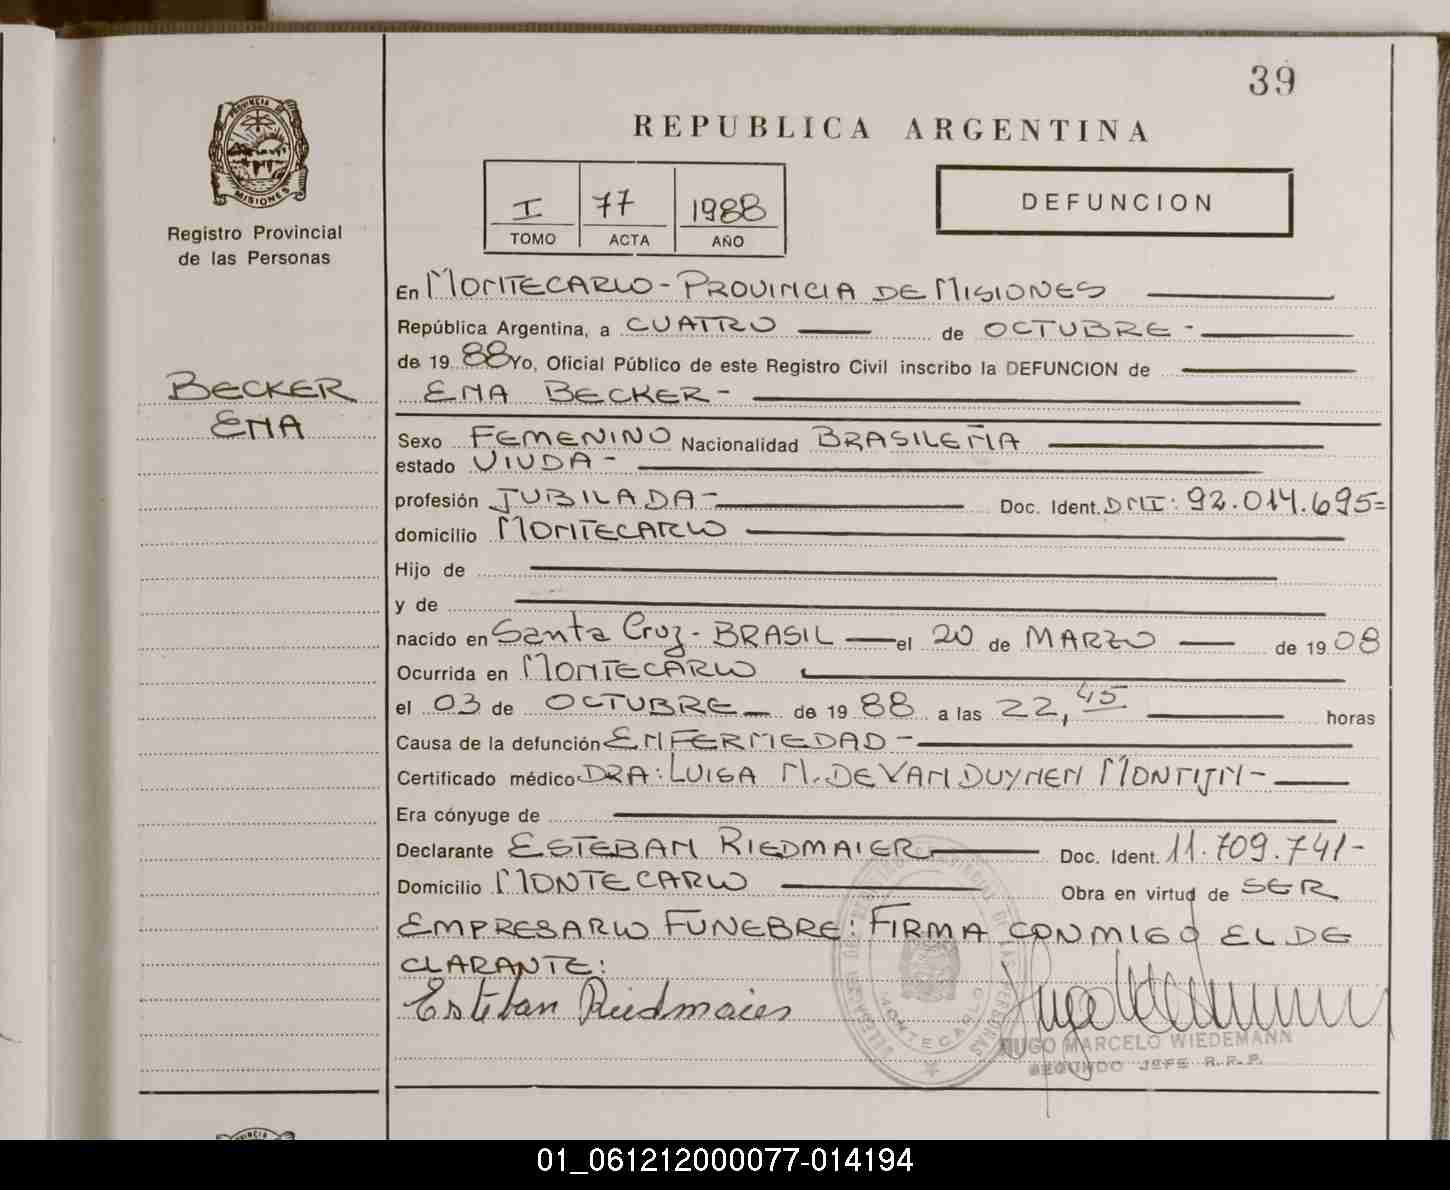 39
REPUBLICA ARGENTINA
PROVINCIA DE
MISIONES
Registro Provincial
de las Personas
I 77 1988
TOMO ACTA AÑO
DEFUNCION
BECKER
EMA
En MONTECARLO - PROVINCIA DE MISIONES
República Argentina, a CUATRO de OCTUBRE -
de 19 88 Yo, Oficial Público de este Registro Civil inscribo la DEFUNCION de
EMA BECKER -
Sexo FEMENINO Nacionalidad BRASILEÑA
estado VIUDA -
profesión JUBILADA - Doc. Ident. DNI: 92.014.695=
domicilio MONTECARLO
Hijo de
y de
nacido en Santa Cruz - BRASIL el 20 de MARZO de 19 08
Ocurrida en MONTECARLO
el 03 de OCTUBRE de 19 88 a las 22,45 horas
Causa de la defunción ENFERMEDAD -
Certificado médico DRA: LUISA M. DE VAN DUYNEN MONTIJN -
Era cónyuge de
Declarante ESTEBAN RIEDMAIER Doc. Ident. 11.709.741 -
Domicilio MONTECARLO Obra en virtud de SER
EMPRESARIO FUNEBRE: FIRMA CONMIGO EL DE
CLARANTE:
Esteban Riedmaier
MONTECARLO
HUGO MARCELO WIEDEMANN
SEGUNDO JEFE R.P.P.
01_061212000077-014194